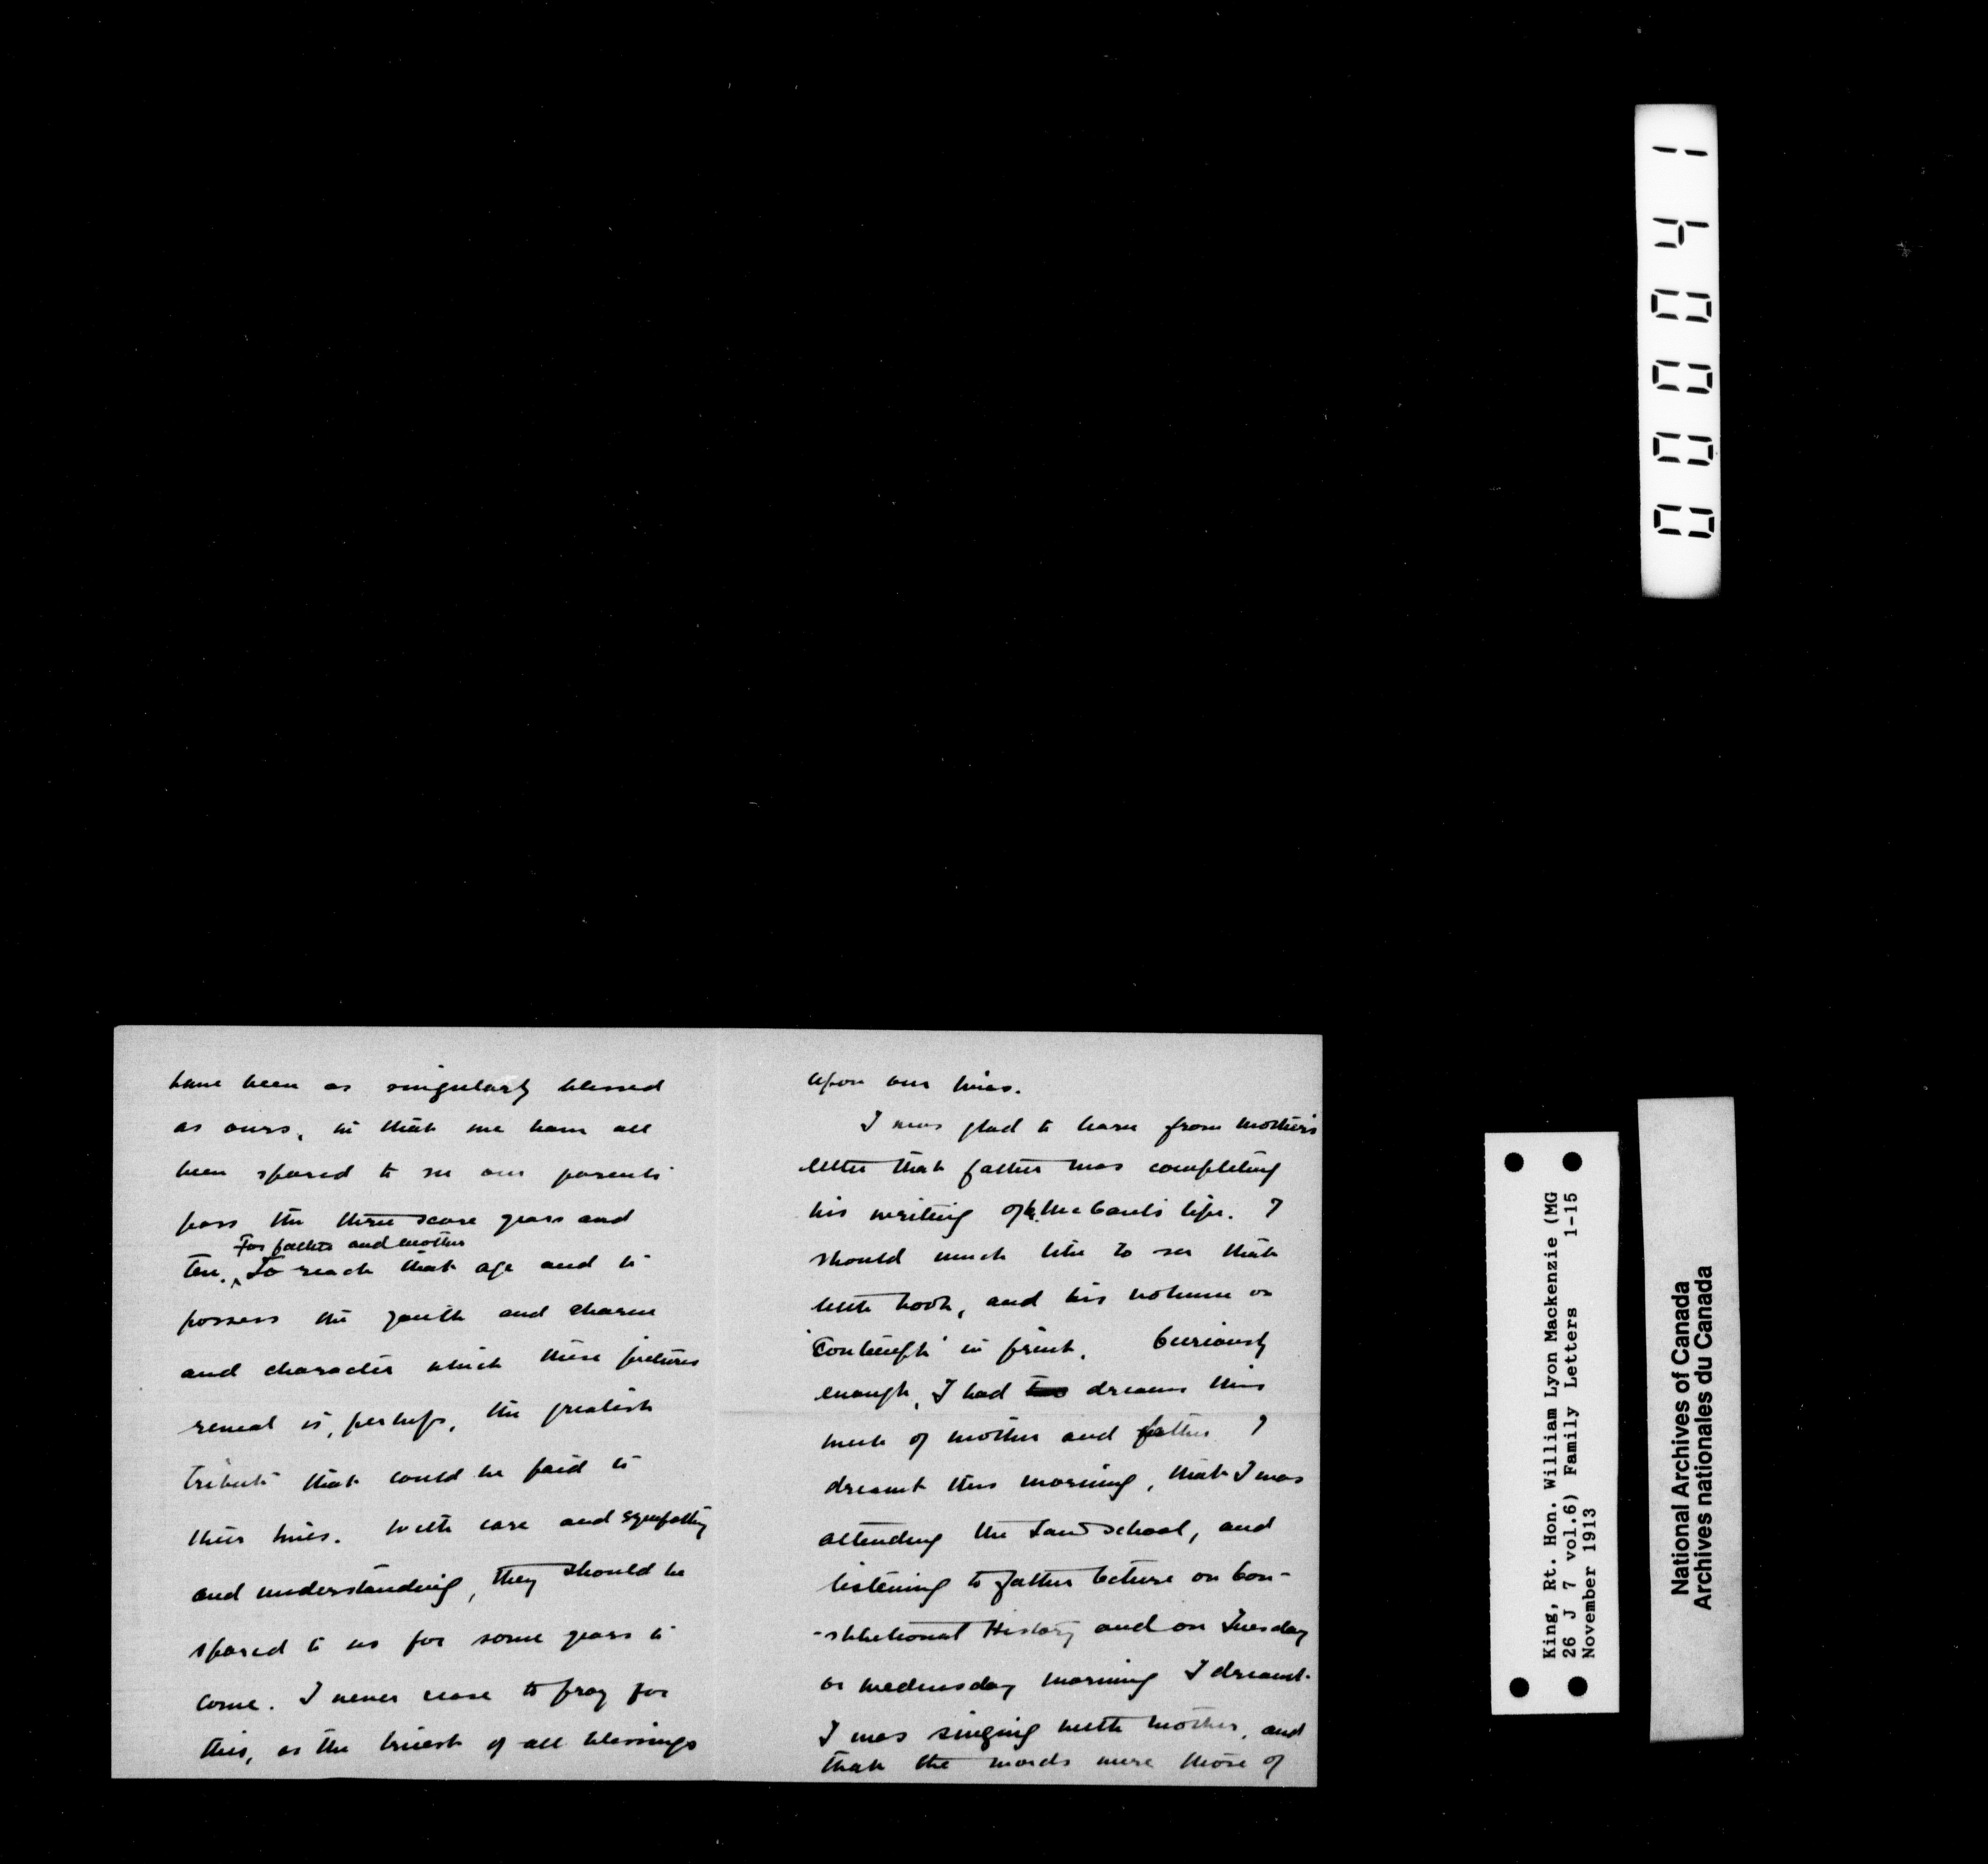 have been as singularly blessed
as ours, in that we have all
been spared to see our parents
pass the three score years and
For father and mother
ten. ^ To reach that age and to
possess the youth and charm
and character which these pictures
reveal is, perhaps, the greatest
tribute that could be paid to
their lives. With care and sympathy
and understanding, they should be
spared to us for some years to
come. I never cease to pray for
this, as the truest of all blessings
upon our lives.
I was glad to learn from mother's
letter that father was completing
his writing of McCaul's life. I
should much like to see that
little book, and his volume on
in print. Curiously
enough, I had two dreams this
week of mother and father. I
dreamt this morning, that I was
attending the Law School, and
listening to father lecture on Con-
-stitutional History and on Tuesday
or Wednesday morning I dreamt
I was singing with mother, and
that the words were those of
000041
King, Rt. Hon. William Lyon Mackenzie (MG
26 J 7 vol.6) Family Letters 1-15
November 1913
National Archives of Canada
Archives nationales du Canada